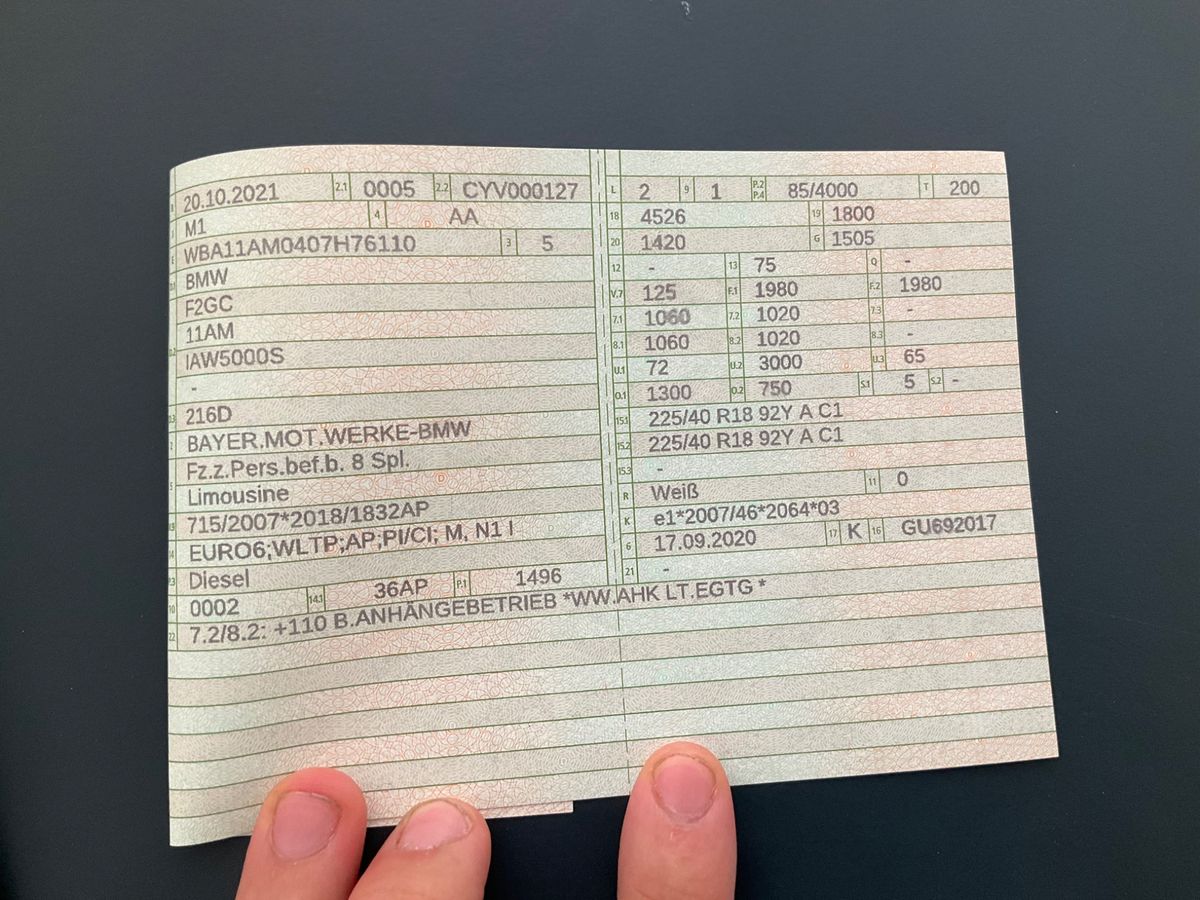 20.10.2021 2.1 0005 2.2 CYV000127
M1 4 AA
E WBA11AM0407H76110 3 5
BMW
F2GC
11AM
IAW5000S
-
216D
BAYER.MOT.WERKE-BMW
Fz.z.Pers.bef.b. 8 Spl.
Limousine
715/2007*2018/1832AP
14 EURO6;WLTP;AP;PI/CI; M, N1 I
Diesel
10 0002 14.1 36AP P.1 1496
22 7.2/8.2: +110 B.ANHÄNGEBETRIEB *WW.AHK LT.EGTG *
L 2 9 1 P.2 P.4 85/4000 T 200
18 4526 19 1800
20 1420 G 1505
12 - 13 75 Q -
V.7 125 F.1 1980 F.2 1980
7.1 1060 7.2 1020 7.3 -
8.1 1060 8.2 1020 8.3 -
U.1 72 U.2 3000 U.3 65
O.1 1300 O.2 750 S.1 5 S.2 -
15.1 225/40 R18 92Y A C1
15.2 225/40 R18 92Y A C1
15.3 -
R Weiß 11 0
K e1*2007/46*2064*03
6 17.09.2020 17 K 16 GU692017
21 -